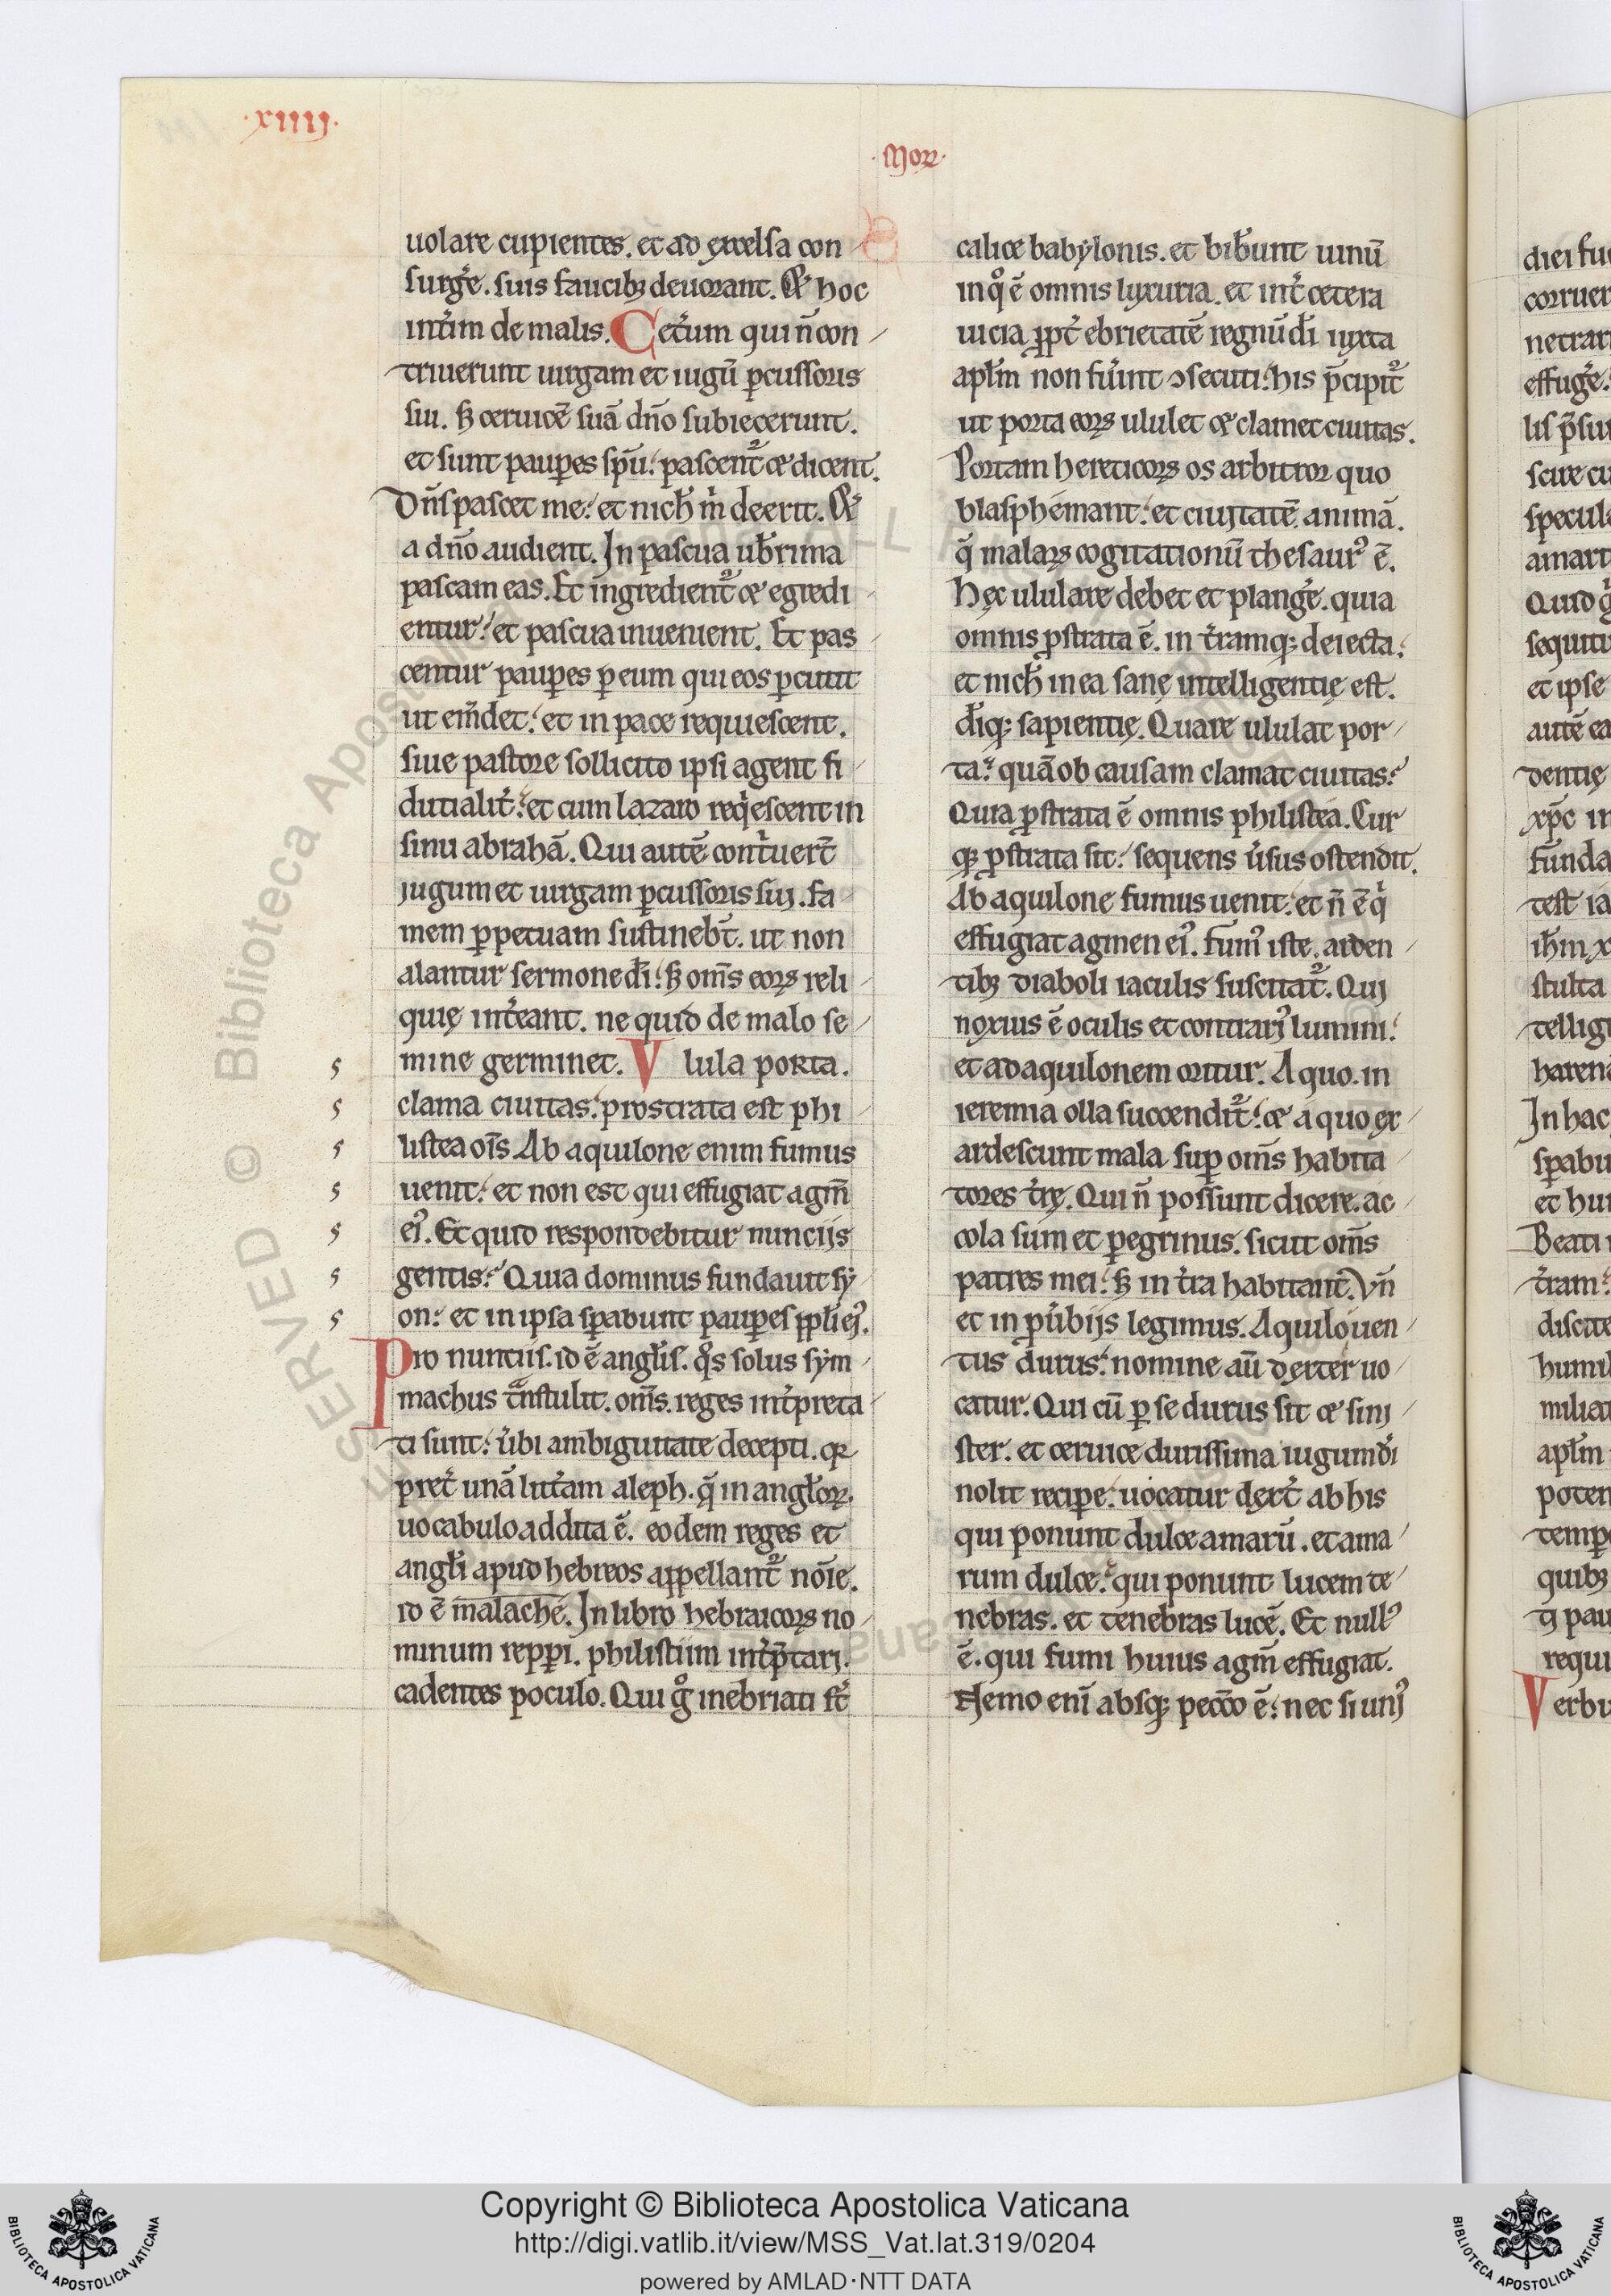 ·xiiij·
·Mor·
uolare cupientes. et ad excelsa con
surgẽ. suis faucibꝫ deuorant. & hoc
inťim de malis. Ceťum qui ñ con
triuerunt uirgam et iugũ ꝑcussoris
sui. sꝫ ceruicẽ suã dño subiecerunt.
et sunt pauꝑes spũ. pascenť & dicent.
Dñs pascet me. et nicħ m̃ deerit. &
a dño audient. In pascua ubᵉrima
pascam eas. Et ingredienť & egredi
entur. et pascua inuenient. Et pas
centur pauꝑes ꝑ eum qui eos ꝑcutit
ut em̃det. et in pace requiescent.
siue pastore sollicito ipsi agent fi
dutialiť. et cum lazaro reqͥescent in
sinu abrahã. Qui autẽ contͥuerť
iugum et uirgam ꝑcussoris sui. fa
mem ꝑpetuam sustinebť. ut non
alantur sermone dĩ. sꝫ om̃s eoꝝ reli
quię inťeant. ne quid de malo se
mine germinet. Vlula porta.
clama ciuitas. prostrata est phi
listea oĩs. Ab aquilone enim fumus
uenit. et non est qui effugiat agm̃
eiꝰ. Et quid respondebitur nunciis
gentis? Quia dominus fundauit sẏ
on. et in ipsa sꝑabunt pauꝑes ppłi eiꝰ.
Pro nuntiis. id ẽ angłis. qͦs solus sẏm
machus tͣnstulit. om̃s. reges inťpreta
ti sunt. ubi ambiguitate decepti. qꝛ
ꝑreť unã litťam aleph. q̃ in angłoꝝ.
uocabulo addita ẽ. eodem reges et
angłi apud hebreos appellanť noĩe.
id ẽ malache. In libro hebraicoꝝ no
minum repꝑi. philistiim inťp̃tari.
cadentes poculo. Qui gͦ inebriati sť
calice babẏlonis. et bibᵉunt uinũ
in qͦ ẽ omnis luxuria. et inť cetera
uicia ꝓpť ebrietatẽ regnũ dĩ iuxta
apłm non fuᵉint ↄsecuti. his p̃cipiť
ut porta eoꝝ ululet & clamet ciuitas.
Portam hereticoꝝ os arbitror quo
blasphemant. et ciuitatẽ animã.
q̃ malaꝝ cogitationũ thesaurꝰ ẽ.
Hęc ululare debet et plangẽ. quia
omnis ꝓstrata ẽ. in ťramqꝫ deiecta.
et nicħ in ea sanę intelligentię est.
dĩqꝫ sapientię. Quare ululat por
ta? quã ob causam clamat ciuitas?
Quia ꝓstrata ẽ omnis philistea. Cur
qꝫ ꝓstrata sit. sequens uᵉsus ostendit.
Ab aquilone fumus uenit. et ñ ẽ qͥ
effugiat agmen eiꝰ. Fumꝰ iste. arden
tibꝫ diaboli iaculis suscitať. Qui
noxius ẽ oculis et contrariꝰ lumini.
et ad aquilonem oritur. A quo. in
ieremia olla succendiť. & a quo ex
ardescunt mala suꝑ om̃s habita
tores ťrę. Qui ñ possunt dicere. ac
cola sum et ꝑegrinus. sicut om̃s
patres mei. sꝫ in ťra habitanť. Vñ
et in ꝓuᵉbiis legimus. Aquilo uen
tus durus. nomine aũ dexter uo
catur. Qui cũ ꝑ se durus sit & sini
ster. et ceruice durissima iugum dĩ
nolit reciꝑe. uocatur dexť ab his
qui ponunt dulce amarũ. et ama
rum dulce. qui ponunt lucem te
nebras. et tenebras lucẽ. Et nullꝰ
ẽ. qui fumi huius agm̃ effugiat.
Nemo eni absqꝫ pecc̃o ẽ. nec si uniꝰ
Copyright © Biblioteca Apostolica Vaticana
http://digi.vatlib.it/view/MSS_Vat.lat.319/0204
powered by AMLAD·NTT DATA
BIBLIOTECA APOSTOLICA VATICANA
BIBLIOTECA APOSTOLICA VATICANA